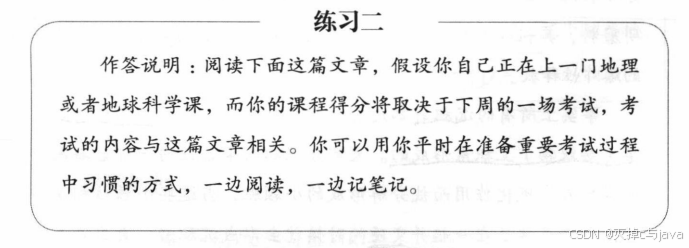 练习二
作答说明：阅读下面这篇文章，假设你自己正在上一门地理
或者地球科学课，而你的课程得分将取决于下周的一场考试，考
试的内容与这篇文章相关。你可以用你平时在准备重要考试过程
中习惯的方式，一边阅读，一边记笔记。
CSDN @灭掉c与java